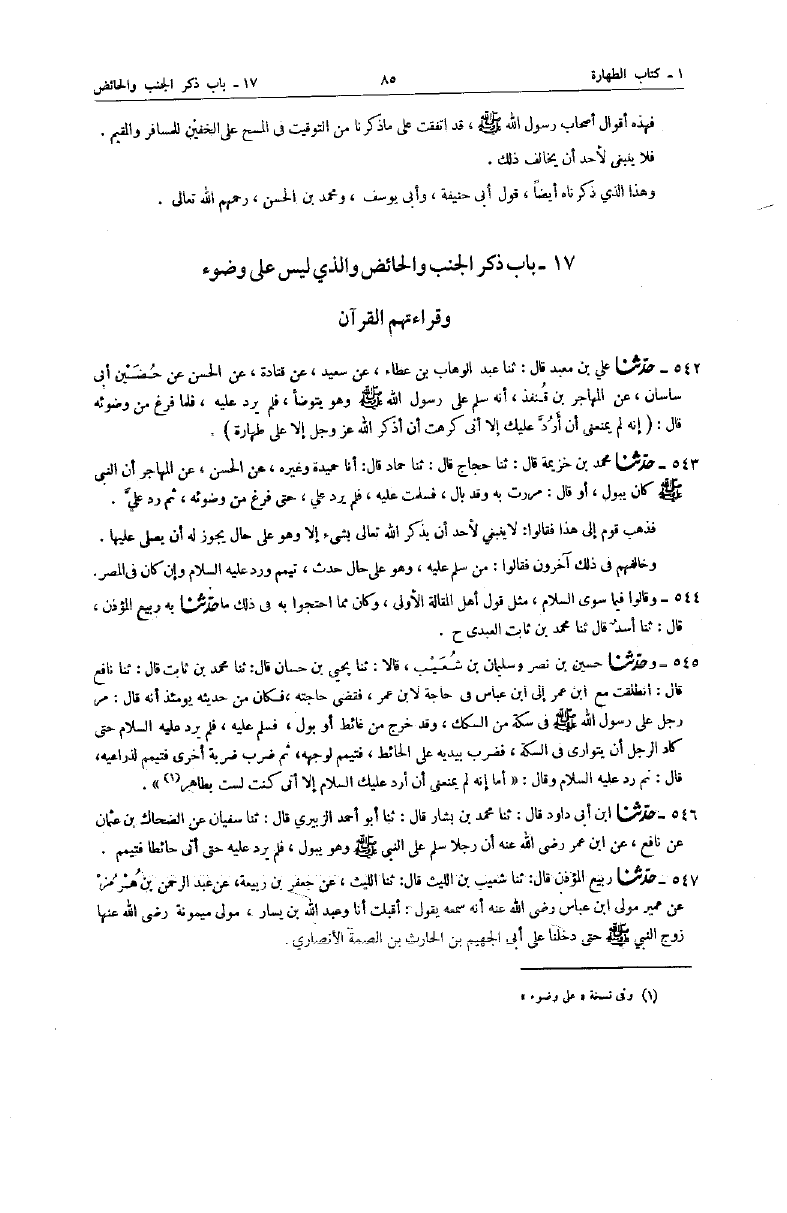 ١ - كتاب الطهارة ٨٥ ١٧ - باب ذكر الجنب والحائض
فهذه أقوال أصحاب رسول الله ﷺ ، قد اتفقت على ماذكرنا من التوقيت فى المسح على الخفين للمسافر والمقيم .
فلا ينبغى لأحد أن يخالف ذلك .
وهذا الذي ذكرناه أيضاً ، قول أبى حنيفة ، وأبى يوسف ، ومحمد بن الحسن ، رحمهم الله تعالى .
١٧ - باب ذكر الجنب والحائض والذي ليس على وضوء
وقراءتهم القرآن
٥٤٢ - حدّثنا علي بن معبد قال : ثنا عبد الوهاب بن عطاء ، عن سعيد ، عن قتادة ، عن الحسن عن حُضَيْن أبى
ساسان ، عن المهاجر بن قُنفذ ، أنه سلم على رسول الله ﷺ وهو يتوضأ ، فلم يرد عليه ، فلما فرغ من وضوئه
قال : ( إنه لم يمنعنى أن أَرُدَّ عليك إلا أنى كرهت أن أذكر الله عز وجل إلا على طهارة ) .
٥٤٣ - حدّثنا محمد بن خزيمة قال : ثنا حجاج قال : ثنا حماد قال: أنا حميدة وغيره ، عن الحسن ، عن المهاجر أن النبى
ﷺ كان يبول ، أو قال : مررت به وقد بال ، فسلمت عليه ، فلم يرد علي ، حتى فرغ من وضوئه ، ثم رد عليَّ .
فذهب قوم إلى هذا فقالوا: لاينبغي لأحد أن يذكر الله تعالى بشىء إلا وهو على حال يجوز له أن يصلى عليها .
وخالفهم فى ذلك آخرون فقالوا : من سلم عليه ، وهو على حال حدث ، تيمم ورد عليه السلام وإن كان فى المصر.
٥٤٤ - وقالوا فيما سوى السلام ، مثل قول أهل المقالة الأولى ، وكان مما احتجوا به فى ذلك ماحدّثنا به ربيع المؤذن ،
قال : ثنا أسد قال ثنا محمد بن ثابت العبدى ح .
٥٤٥ - وحدّثنا حسين بن نصر وسليمان بن شُعَيْب ، قالا : ثنا يحيى بن حسان قال: ثنا محمد بن ثابت قال : ثنا نافع
قال : انطلقت مع ابن عمر إلى ابن عباس فى حاجة لابن عمر ، فقضى حاجته ،فكان من حديثه يومئذ أنه قال : مر
رجل على رسول الله ﷺ فى سكة من السكك ، وقد خرج من غائط أو بول ، فسلم عليه ، فلم يرد عليه السلام حتى
كاد الرجل أن يتوارى فى السكة ، فضرب بيديه على الحائط ، فتيمم لوجهه، ثم ضرب ضربة أخرى فتيمم لذراعيه،
قال : ثم رد عليه السلام وقال : « أما إنه لم يمنعنى أن أرد عليك السلام إلا أنى كنت لست بطاهر(١) » .
٥٤٦ -حدّثنا ابن أبى داود قال : ثنا محمد بن بشار قال : ثنا أبو أحمد الزبيري قال : ثنا سفيان عن الضحاك بن عثمان
عن نافع ، عن ابن عمر رضى الله عنه أن رجلا سلم على النبى ﷺ وهو يبول ، فلم يرد عليه حتى أتى حائطا فتيمم .
٥٤٧ -حدّثنا ربيع المؤذن قال: ثنا شعيب بن الليث قال: ثنا الليث ، عن جعفر بن ربيعة، عن عبد الرحمن بن هُرْمُز
عن عمير مولى ابن عباس رضى الله عنه أنه سمعه يقول : أقبلت أنا وعبد الله بن يسار ، مولى ميمونة رضى الله عنها
زوج النبى ﷺ حتى دخلنا على أبى الجهيم بن الحارث بن الصمة الأنصاري .
(١) وفى نسخة « على وضوء »